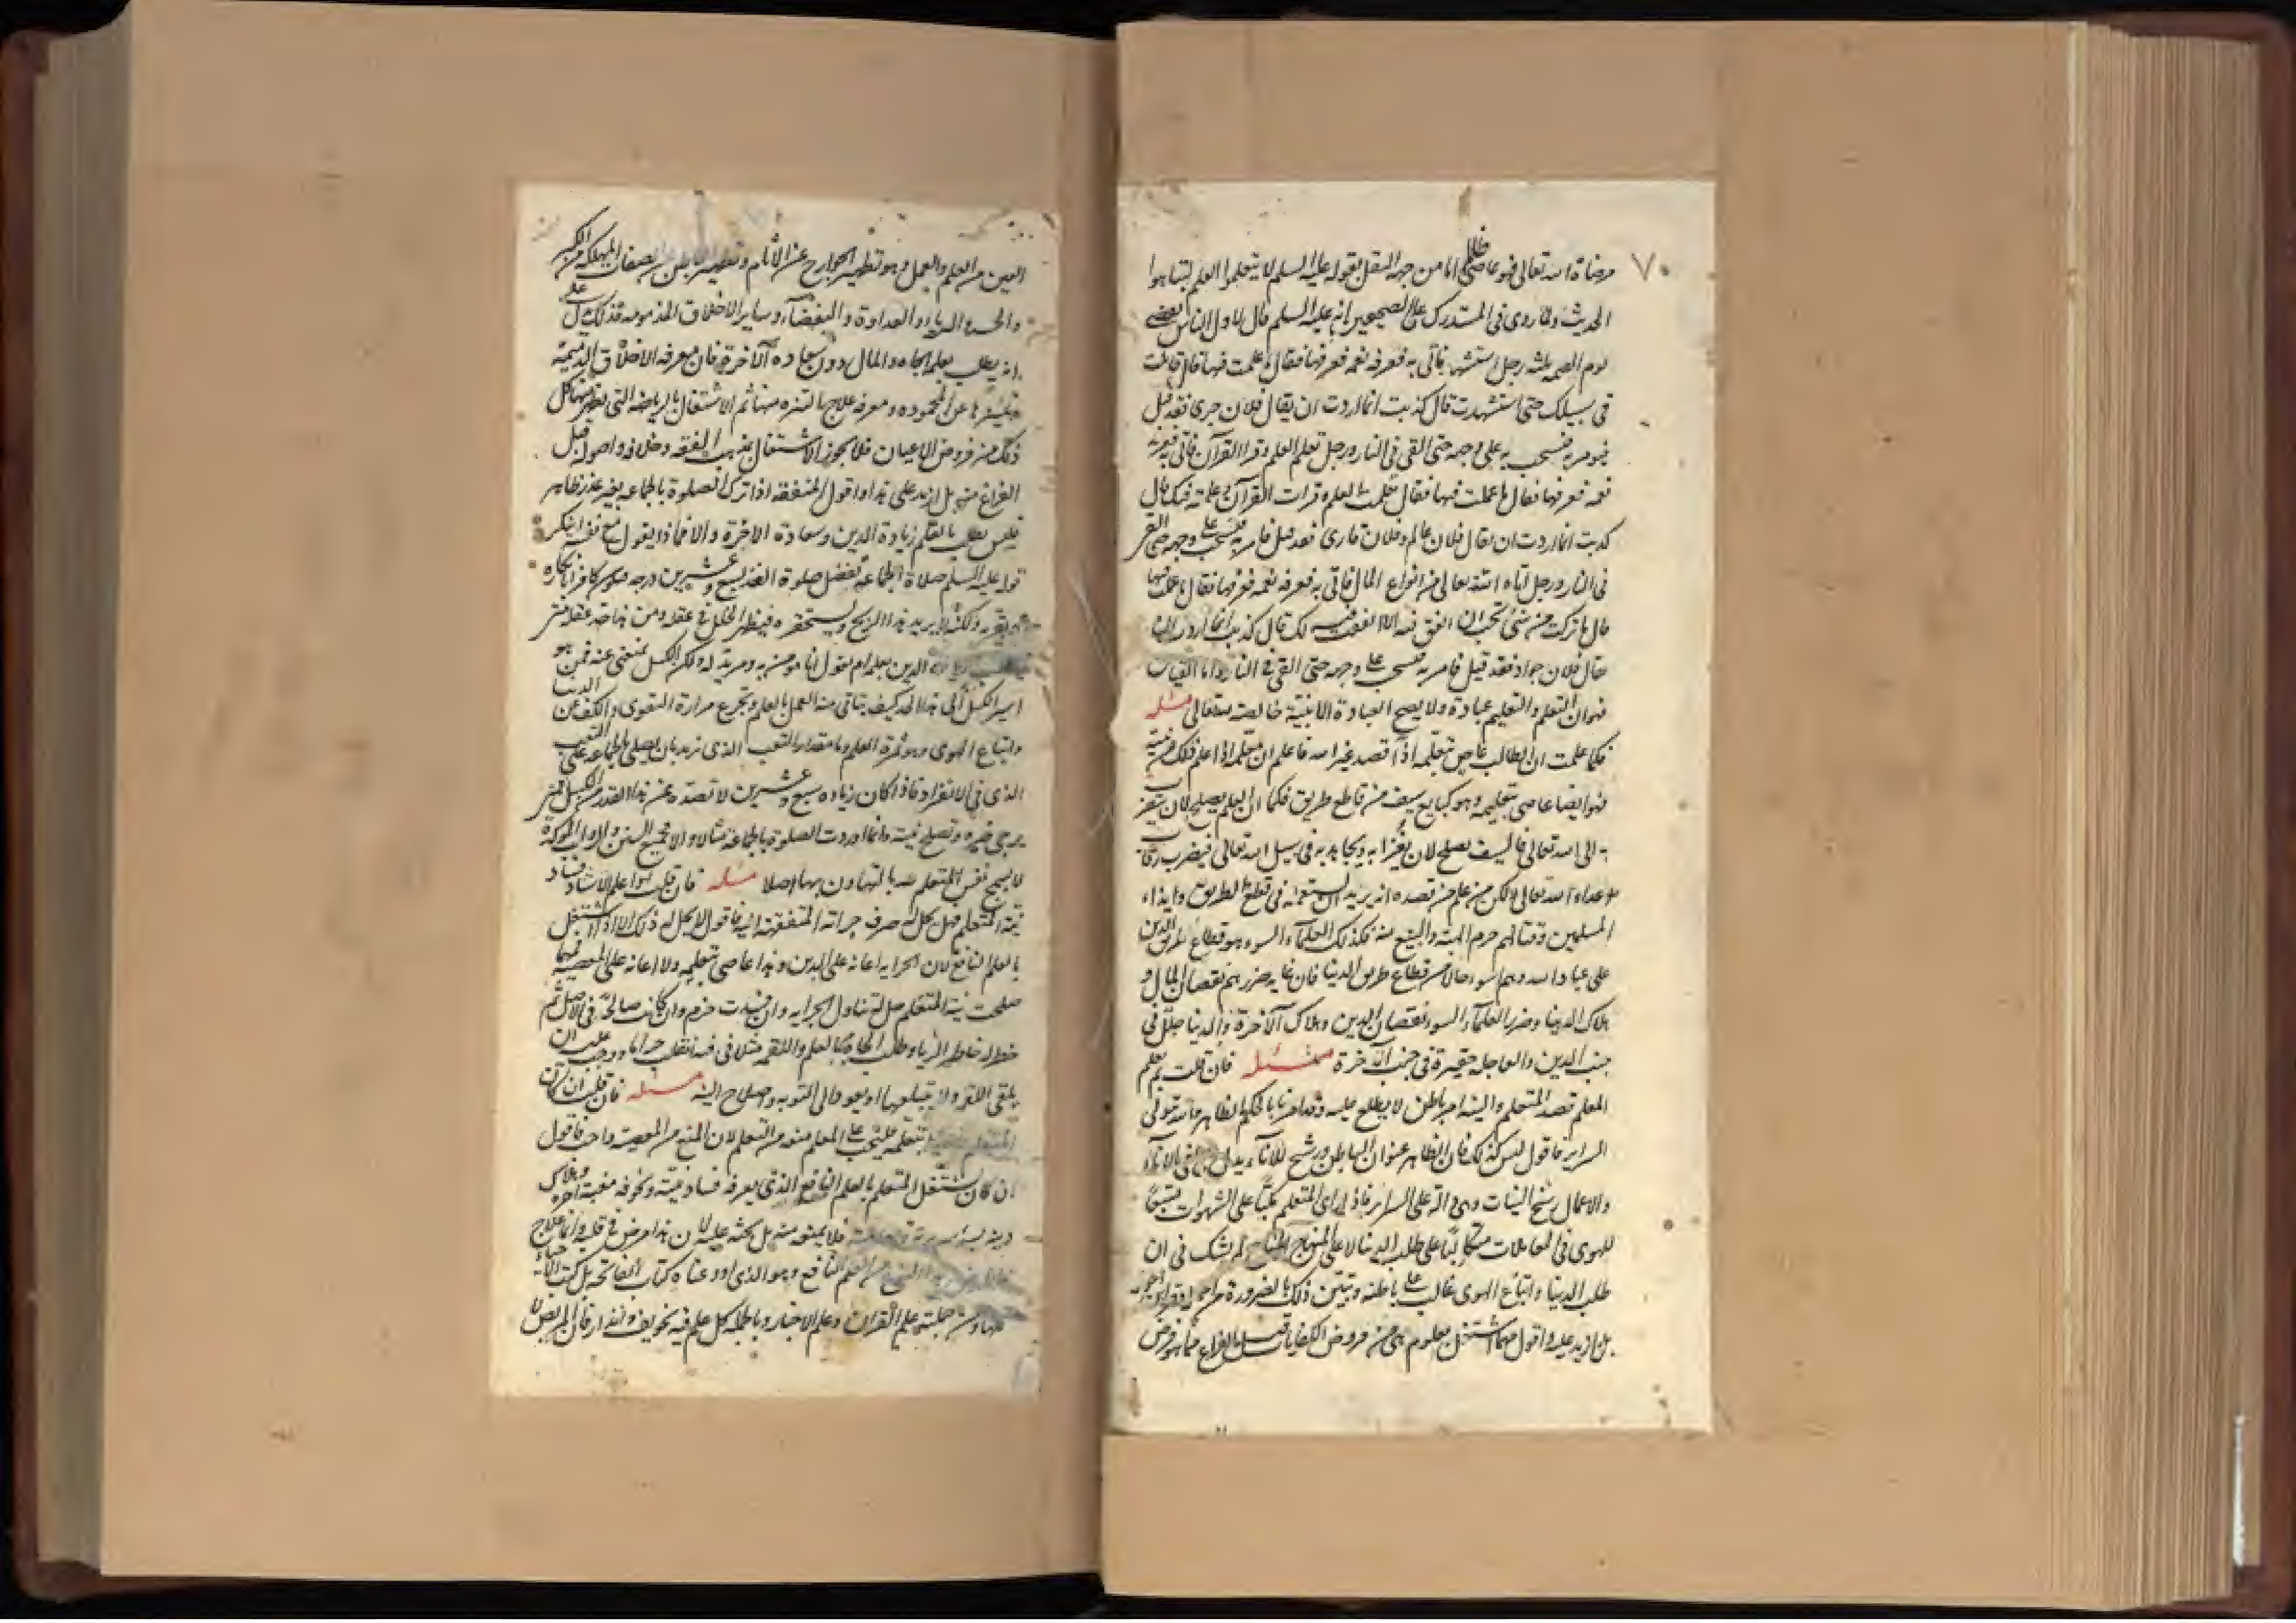 ٧٠
مرضاة الله تعالى فهو عاص ظالم اما من جهة النقل فقوله عليه السلم لا يتعلموا العلم لتباهوا
الحديث وما روى فى المستدرك على الصحيحين انه عليه السلم قال اول الناس يقضى
يوم القيمه ثلثه رجل استشهد فاتى به فعرفه نعمه فعرفها فقال ما عملت فيها قال قاتلت
فى سبيلك حتى استشهدت قال كذبت انما اردت ان يقال فلان جرى فقد قيل
فيومر به فيسحب به على وجهه حتى القى فى النار ورجل تعلم العلم وقرا القرآن فاتى به فعرفه
نعمه فعرفها فقال ما عملت فيها فقال تعلمت العلم وقرات القرآن وعلمته فيك قال
كذبت انما اردت ان يقال فلان عالم وفلان قارى فقد قيل فامر به فسحب على وجهه حتى القى
فى النار ورجل آتاه الله تعالى من انواع المال فاتى به فعرفه نعمه فعرفها فقال ما عملت فيها
قال ما تركت من شى تحب ان انفق فيه الا انفقت فيه لك قال كذبت انما اردت ان
يقال فلان جواد فقد قيل فامر به فسحب على وجهه حتى القى فى النار واما القياس
فهو ان التعلم والتعليم عبادة ولا يصح العبادة الا بنية خالصة لله تعالى مسئله
فكما علمت ان الطالب عاص بتعلمه اذا قصد غير الله فاعلم ان معلمه اذا علم ذلك من نيته
فهو ايضا عاصى بتعليمه وهو كبايع سيف من قاطع طريق فكما ان العلم يصلح لان يتقرب
به الى الله تعالى فالسيف يصلح لان يغزا به ويجاهد به فى سبيل الله تعالى فيضرب رقاب
اعداء الله تعالى ولكن من علم من قصده انه يريد ان يستعمله فى قطع الطريق وايذاء
المسلمين وقتالهم حرم الهبة والبيع منه فكذلك العلماء السوء هو قطاع طريق الدين
على عباد الله وهم اسوء حالا من قطاع طريق الدنيا فان غاية ضررهم نقصان المال و
هلاك الدنيا وضرر العلماء السوء نقصان الدين وهلاك الآخرة والدنيا جلل فى
جنب الدين والعاجله حقيرة فى جنب الآخرة مسئله فان قلت بم يعلم
المعلم قصد المتعلم والنية امر باطن لا يطلع عليه وقد امرنا بالحكم الظاهر والله تولى
السراير فاقول ليس كذلك فان الظاهر عنوان الباطن ورشح الاناء يدل على ما فى الاناء
والاعمال رشح النيات وهى دالة على السراير فاذا راى المتعلم مكبا على الشهوات متبعا
للهوى فى المعاملات متكالبا على طلب الدنيا لا على المنهاج المباح لم يشك فى ان
طلب الدنيا واتباع الهوى غالب على باطنه وتبين ذلك بالضرورة من احواله
بل ازيد عليه واقول مهما اشتغل بعلوم هى من فروض الكفايات قبل الفراغ مما هو فرض
العين من العلم والعمل وهو تطهير الجوارح عن الآثام وتطهير الباطن عن الصفات المهلكة من الكبر
والحسد والرياء والعداوة والبغضاء وساير الاخلاق المذمومه فذلك يدل على
انه يطلب بعلمه الجاه والمال دون سعادة الآخرة فان معرفة الاخلاق الذميمة
وتمييزها عن المحموده ومعرفة علاجها لتنزه منها ثم الاشتغال بالرياضه التى تطهر منها كل
ذلك من فروض الاعيان فلا يجوز الاشتغال بمذهب الفقه وخلافه واصوله قبل
الفراغ منه بل ازيد على هذا واقول المتفقه اذا ترك الصلوة بالجماعه بغير عذر ظاهر
فليس يطلب بالعلم زيادة الدين وسعادة الآخرة والا فماذا يقول مع نفسه اينكر
قوله عليه السلم صلاة الجماعه تفضل صلوة الفذ بسبع وعشرين درجه فيكون كافرا بانكاره
او يقر به ولكنه لا يريد هذا الربح ويستحقره فيظهر الخلل فى عقله ومن هذا حد عقله متى
الدين بعلمه ام يقول انا مومن به ومريد له ولكن الكسل يمنعنى عنه فمن هو
اسير الكسل الى هذا الحد كيف يتاتى منه العمل بالعلم وتجرع مرارة التقوى والكف عن الدنيا
واتباع الهوى وهو ثمرة العلم وما مقدار التعب الذى تزيد بان يصلى بالجماعه على التعب
الذى فى الانفراد فاذا كان زيادة سبع وعشرين لا تصده عن هذا القدر من الكسل فمتى
يرجى خيره وتصلح نيته وانما اوردت الصلوة بالجماعة مثالا والا فجميع السنن والرواتب الموكدة
لا يسمح نفس المتعلم لله بالتهاون بها اصلا مسئله فان قلت لو علم الاستاد فساد
نية المتعلم فهل يحل له صرف جراية المتفقهة اليه فاقول لا يحل له ذلك الا اذا اشتغل
بالعلم النافع لان الجراية اعانة على الدين وهذا عاصى بتعلمه ولا اعانة على المعصية فمهما
صلحت نية المتعلم حل له تناول الجراية وان فسدت حرم وان كانت صالحة فى الاصل ثم
خطر له خاطر الرياء وطلب الجاه بالعلم واللقمة مثلا فى فيه انقلب حراما ووجب عليه ان
يلقى اللقمة ولا يبتلعها او يعود الى التوبه واصلاح النية مسئله فان قلت ان كان
المتعلم بتعلمه فليجب على المعلم منعه من التعلم لان المنع من المعصية واجب فاقول
ان كان يشتغل المتعلم بالعلم النافع الذى يعرفه فساد نيته ويخوفه مغبة امره وهلاك
دينه فلا يمنعه منه بل يحثه عليه لان هذا مرض فى قلبه وانما علاج
من العلم النافع وهو الذى اودعناه كتاب الفاتحه بل كتب الاحياء
ومن جملته علم القرآن وعلم الاخبار وبالجملة كل علم فيه تخويف وانذار فان المريض لا